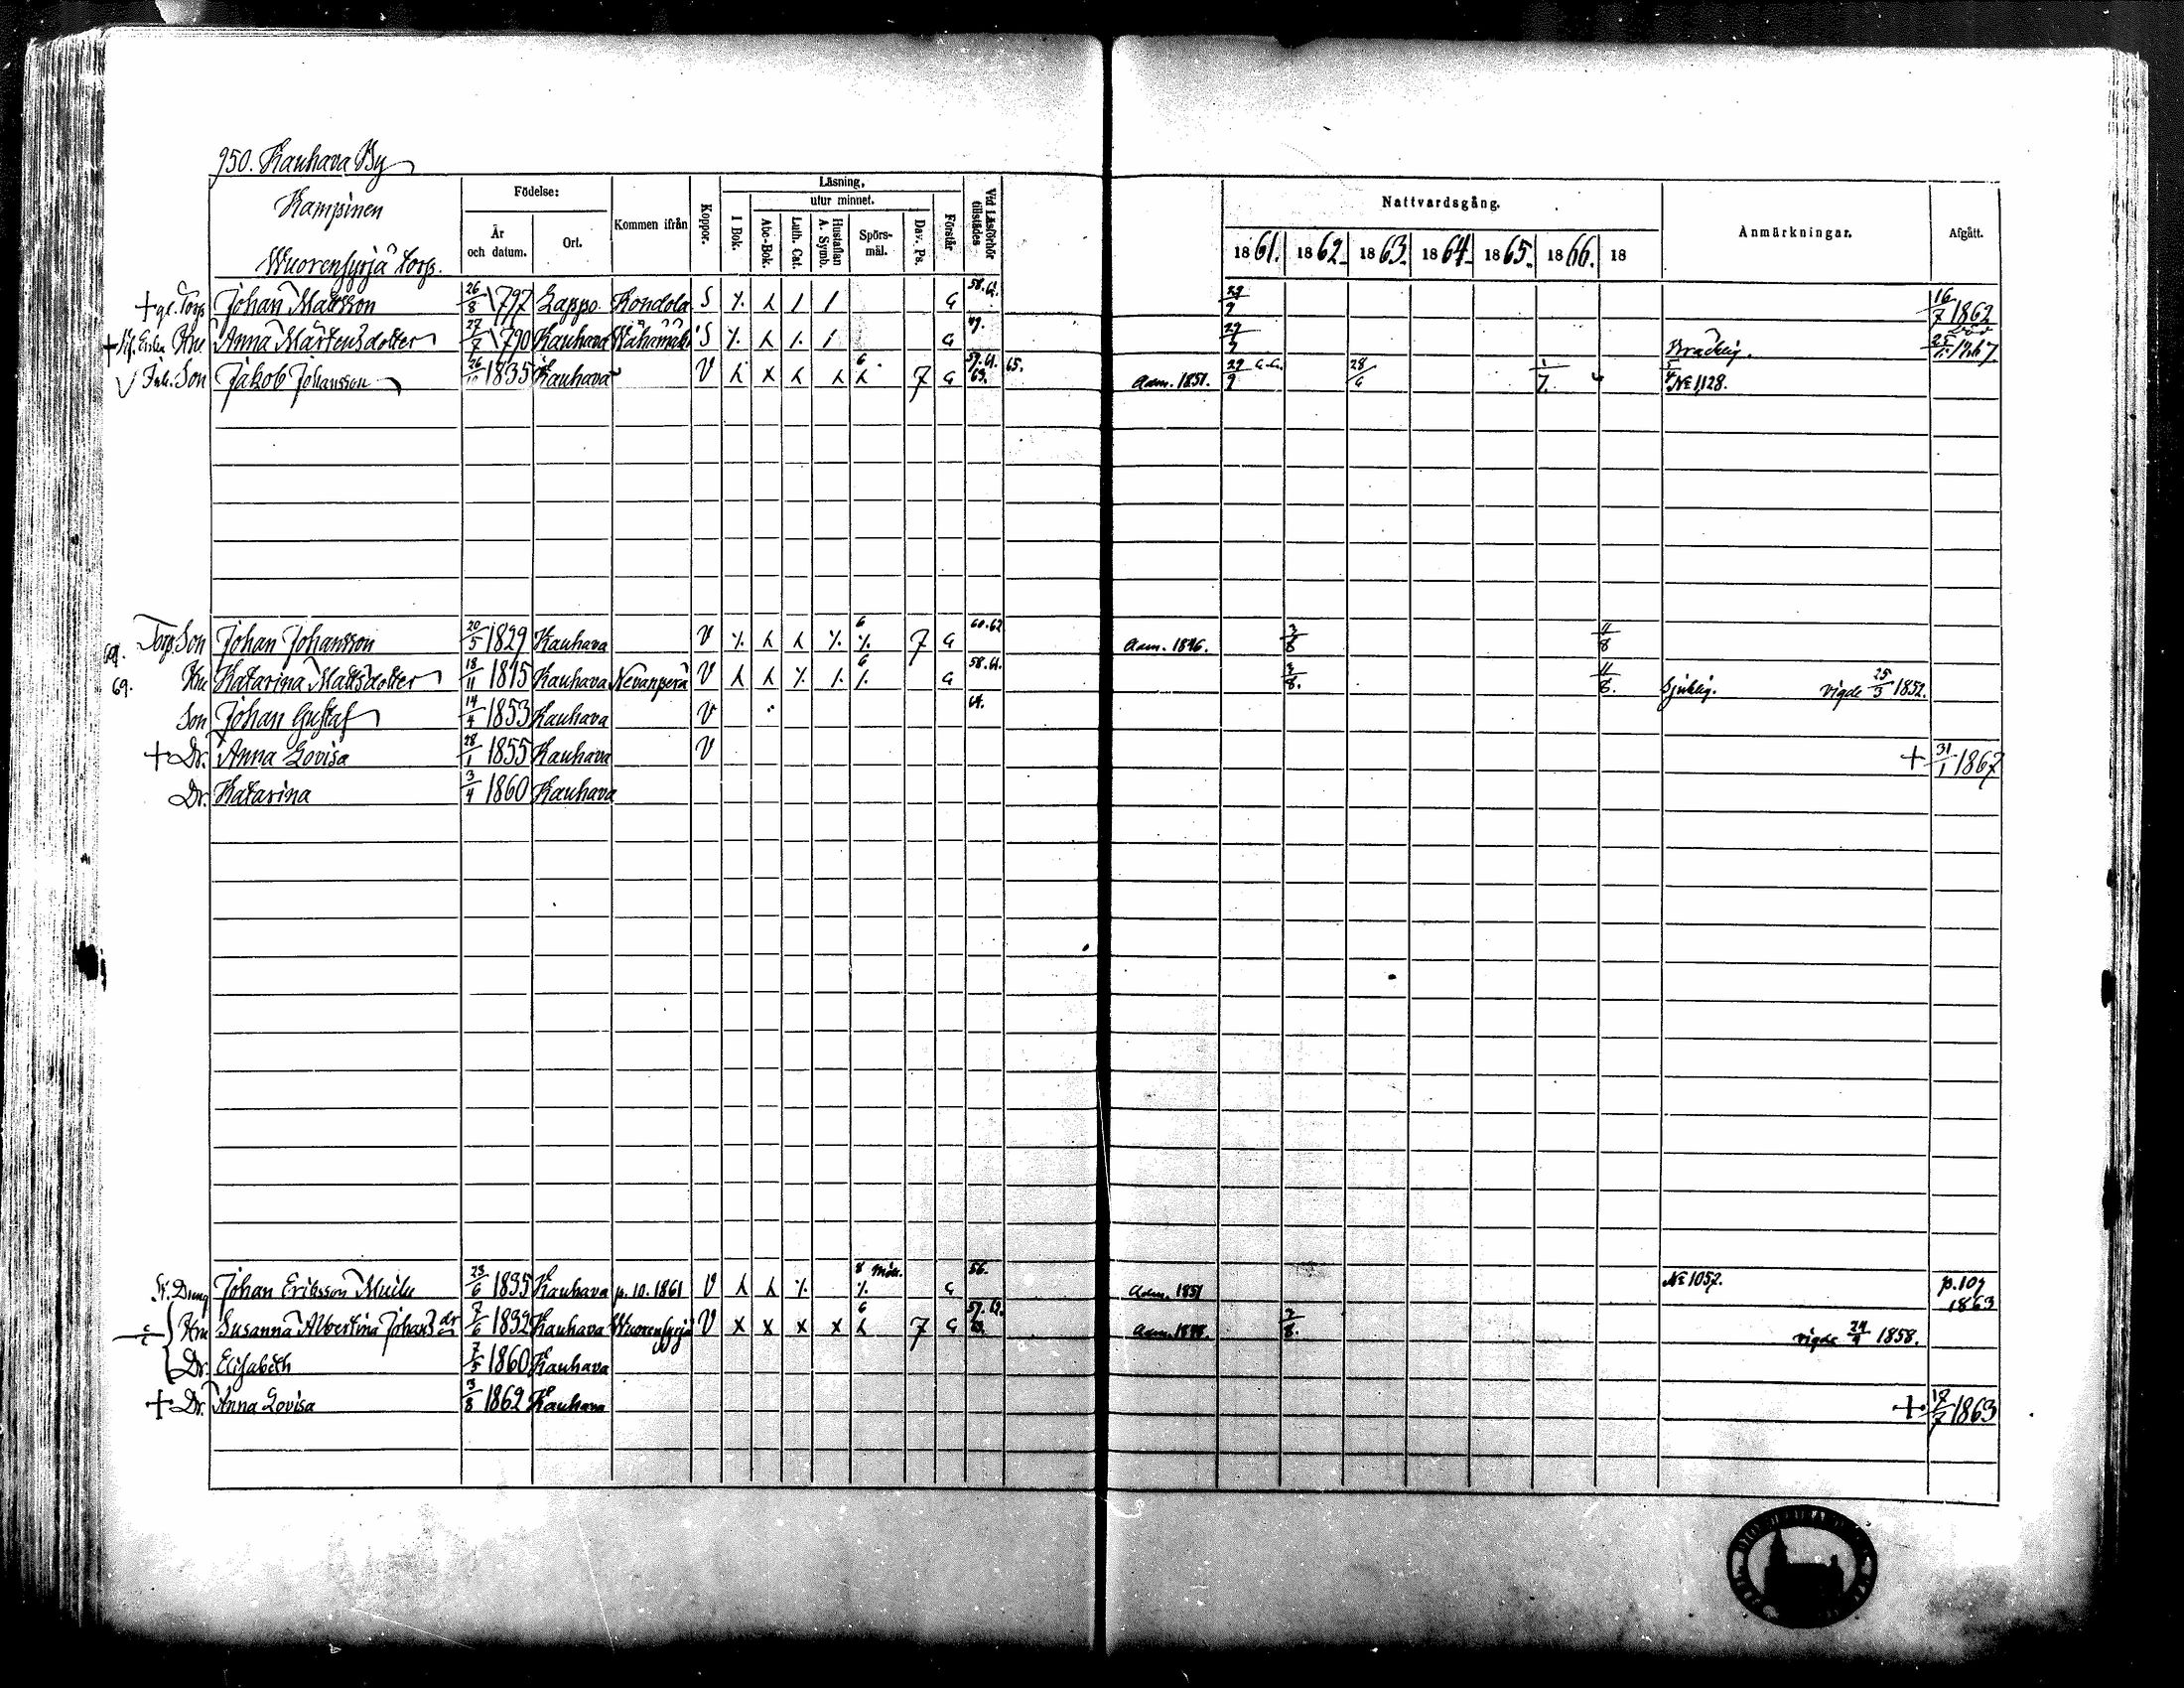 950. Kauhava By
Kampinen
Wuorensyrjä torp.
Födelse:
År och datum.
Ort.
Kommen ifrån
Koppor.
Läsning,
I Bok.
utur minnet.
Abc-Bok.
Luth. Cat.
Hustaflan A. Symb.
Spörsmål.
Dav. Ps.
Förstår
Vid Läsförhör tillstädes
Nattvardsgång.
1861. 1862. 1863. 1864. 1865. 1866. 18
Anmärkningar.
Afgått.
+ gl. Torp Johan Mattsson 26/8 1797 Lappo Kondola S G 58. 61. 29/9 16/7 1862
+ Hu Anna Mårtensdotter 27/7 1790 Kauhava Wähämäki S G 49. 29/9 Bräcklig. Död 1867
Son Jakob Johansson 1835 Kauhava V 6 7 G 59. 61. 63. 65. Adm. 1851. 29/9 28/6 1/7. № 1,128.
Torp. Son Johan Johansson 20/5 1829 Kauhava V 6 7 G 60. 62 Adm. 1846. 3/8 11/8
69. Hu Katarina Mattsdotter 18/11 1815 Kauhava Nevanperä V 6 G 58. 61. 3/8. 11/8. Sjuklig. vigde 25/3 1852.
Son Johan Gustaf 14/4 1853 Kauhava V 64.
+ Dr. Anna Lovisa 28/1 1855 Kauhava V + 31/1 1867
Dr. Katarina 3/4 1860 Kauhava
Johan Eriksson 23/6 1835 Kauhava p. 10. 1861 V 8 G 56. Adm. 1851 № 1057. p. 109 1863
Hu Susanna Albertina Johansdr 7/6 1832 Kauhava Wuorensyrjä V X X X X 6 7 G Adm. 1848. 3/8. vigde 24/4 1858.
Dr. Elisabeth 7/5 1860 Kauhava
+ Dr. Anna Lovisa 3/8 1862 Kauhava + 1863